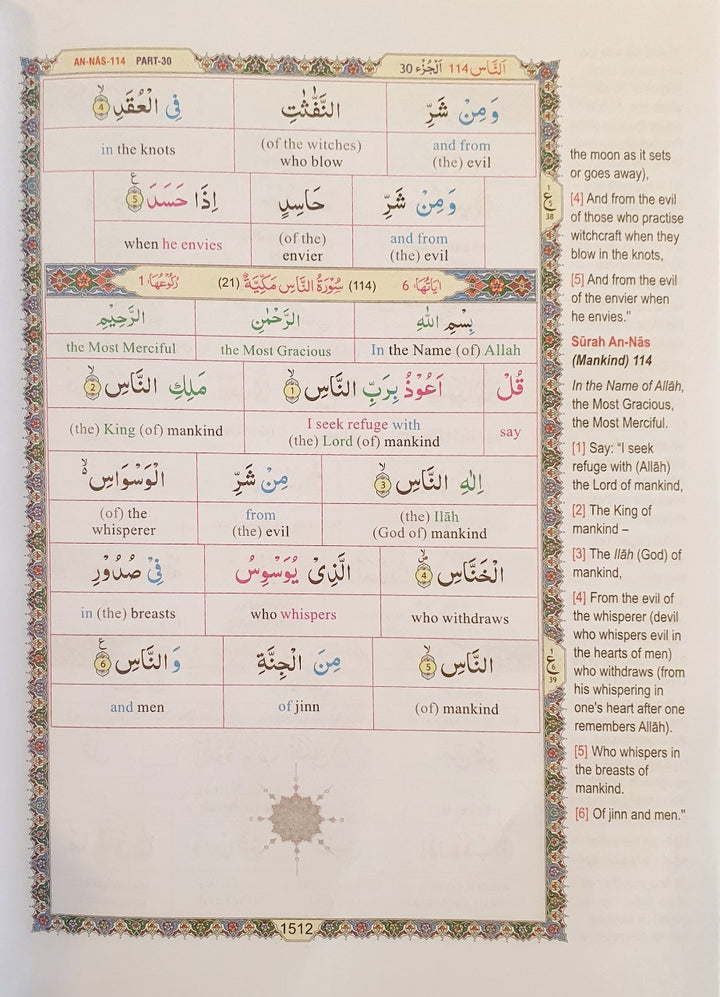 AN-NĀS-114 PART-30
اَلنَّاس 114 اَلْجُزْء 30
وَ مِنْ شَرِّ النَّفّٰثٰتِ فِى الْعُقَدِ 4
and from (of the witches) in the knots
(the) evil who blow
وَمِنْ شَرِّ حَاسِدٍ اِذَا حَسَدَ 5
and from (of the) when he envies
(the) evil envier
ع
1
5
38
اٰيَاتُهَا 6 (114) سُوْرَةُ النَّاسِ مَكِّيَّةٌ (21) رُكُوْعُهَا 1
بِسْمِ اللّٰهِ الرَّحْمٰنِ الرَّحِيْمِ
In the Name (of) Allah the Most Gracious the Most Merciful
قُلْ اَعُوْذُ بِرَبِّ النَّاسِ 1 مَلِكِ النَّاسِ 2
say I seek refuge with (the) King (of) mankind
(the) Lord (of) mankind
اِلٰهِ النَّاسِ 3 مِنْ شَرِّ الْوَسْوَاسِ
(the) Ilāh from (of) the
(God of) mankind (the) evil whisperer
الْخَنَّاسِ 4 الَّذِىْ يُوَسْوِسُ فِىْ صُدُوْرِ
who withdraws who whispers in (the) breasts
النَّاسِ 5 مِنَ الْجِنَّةِ وَ النَّاسِ 6
(of) mankind of jinn and men
ع
1
6
39
1512
the moon as it sets
or goes away),
[4] And from the evil
of those who practise
witchcraft when they
blow in the knots,
[5] And from the evil
of the envier when
he envies."
Sūrah An-Nās
(Mankind) 114
In the Name of Allāh,
the Most Gracious,
the Most Merciful.
[1] Say: "I seek
refuge with (Allāh)
the Lord of mankind,
[2] The King of
mankind –
[3] The Ilāh (God) of
mankind,
[4] From the evil of
the whisperer (devil
who whispers evil in
the hearts of men)
who withdraws (from
his whispering in
one's heart after one
remembers Allāh).
[5] Who whispers in
the breasts of
mankind.
[6] Of jinn and men."